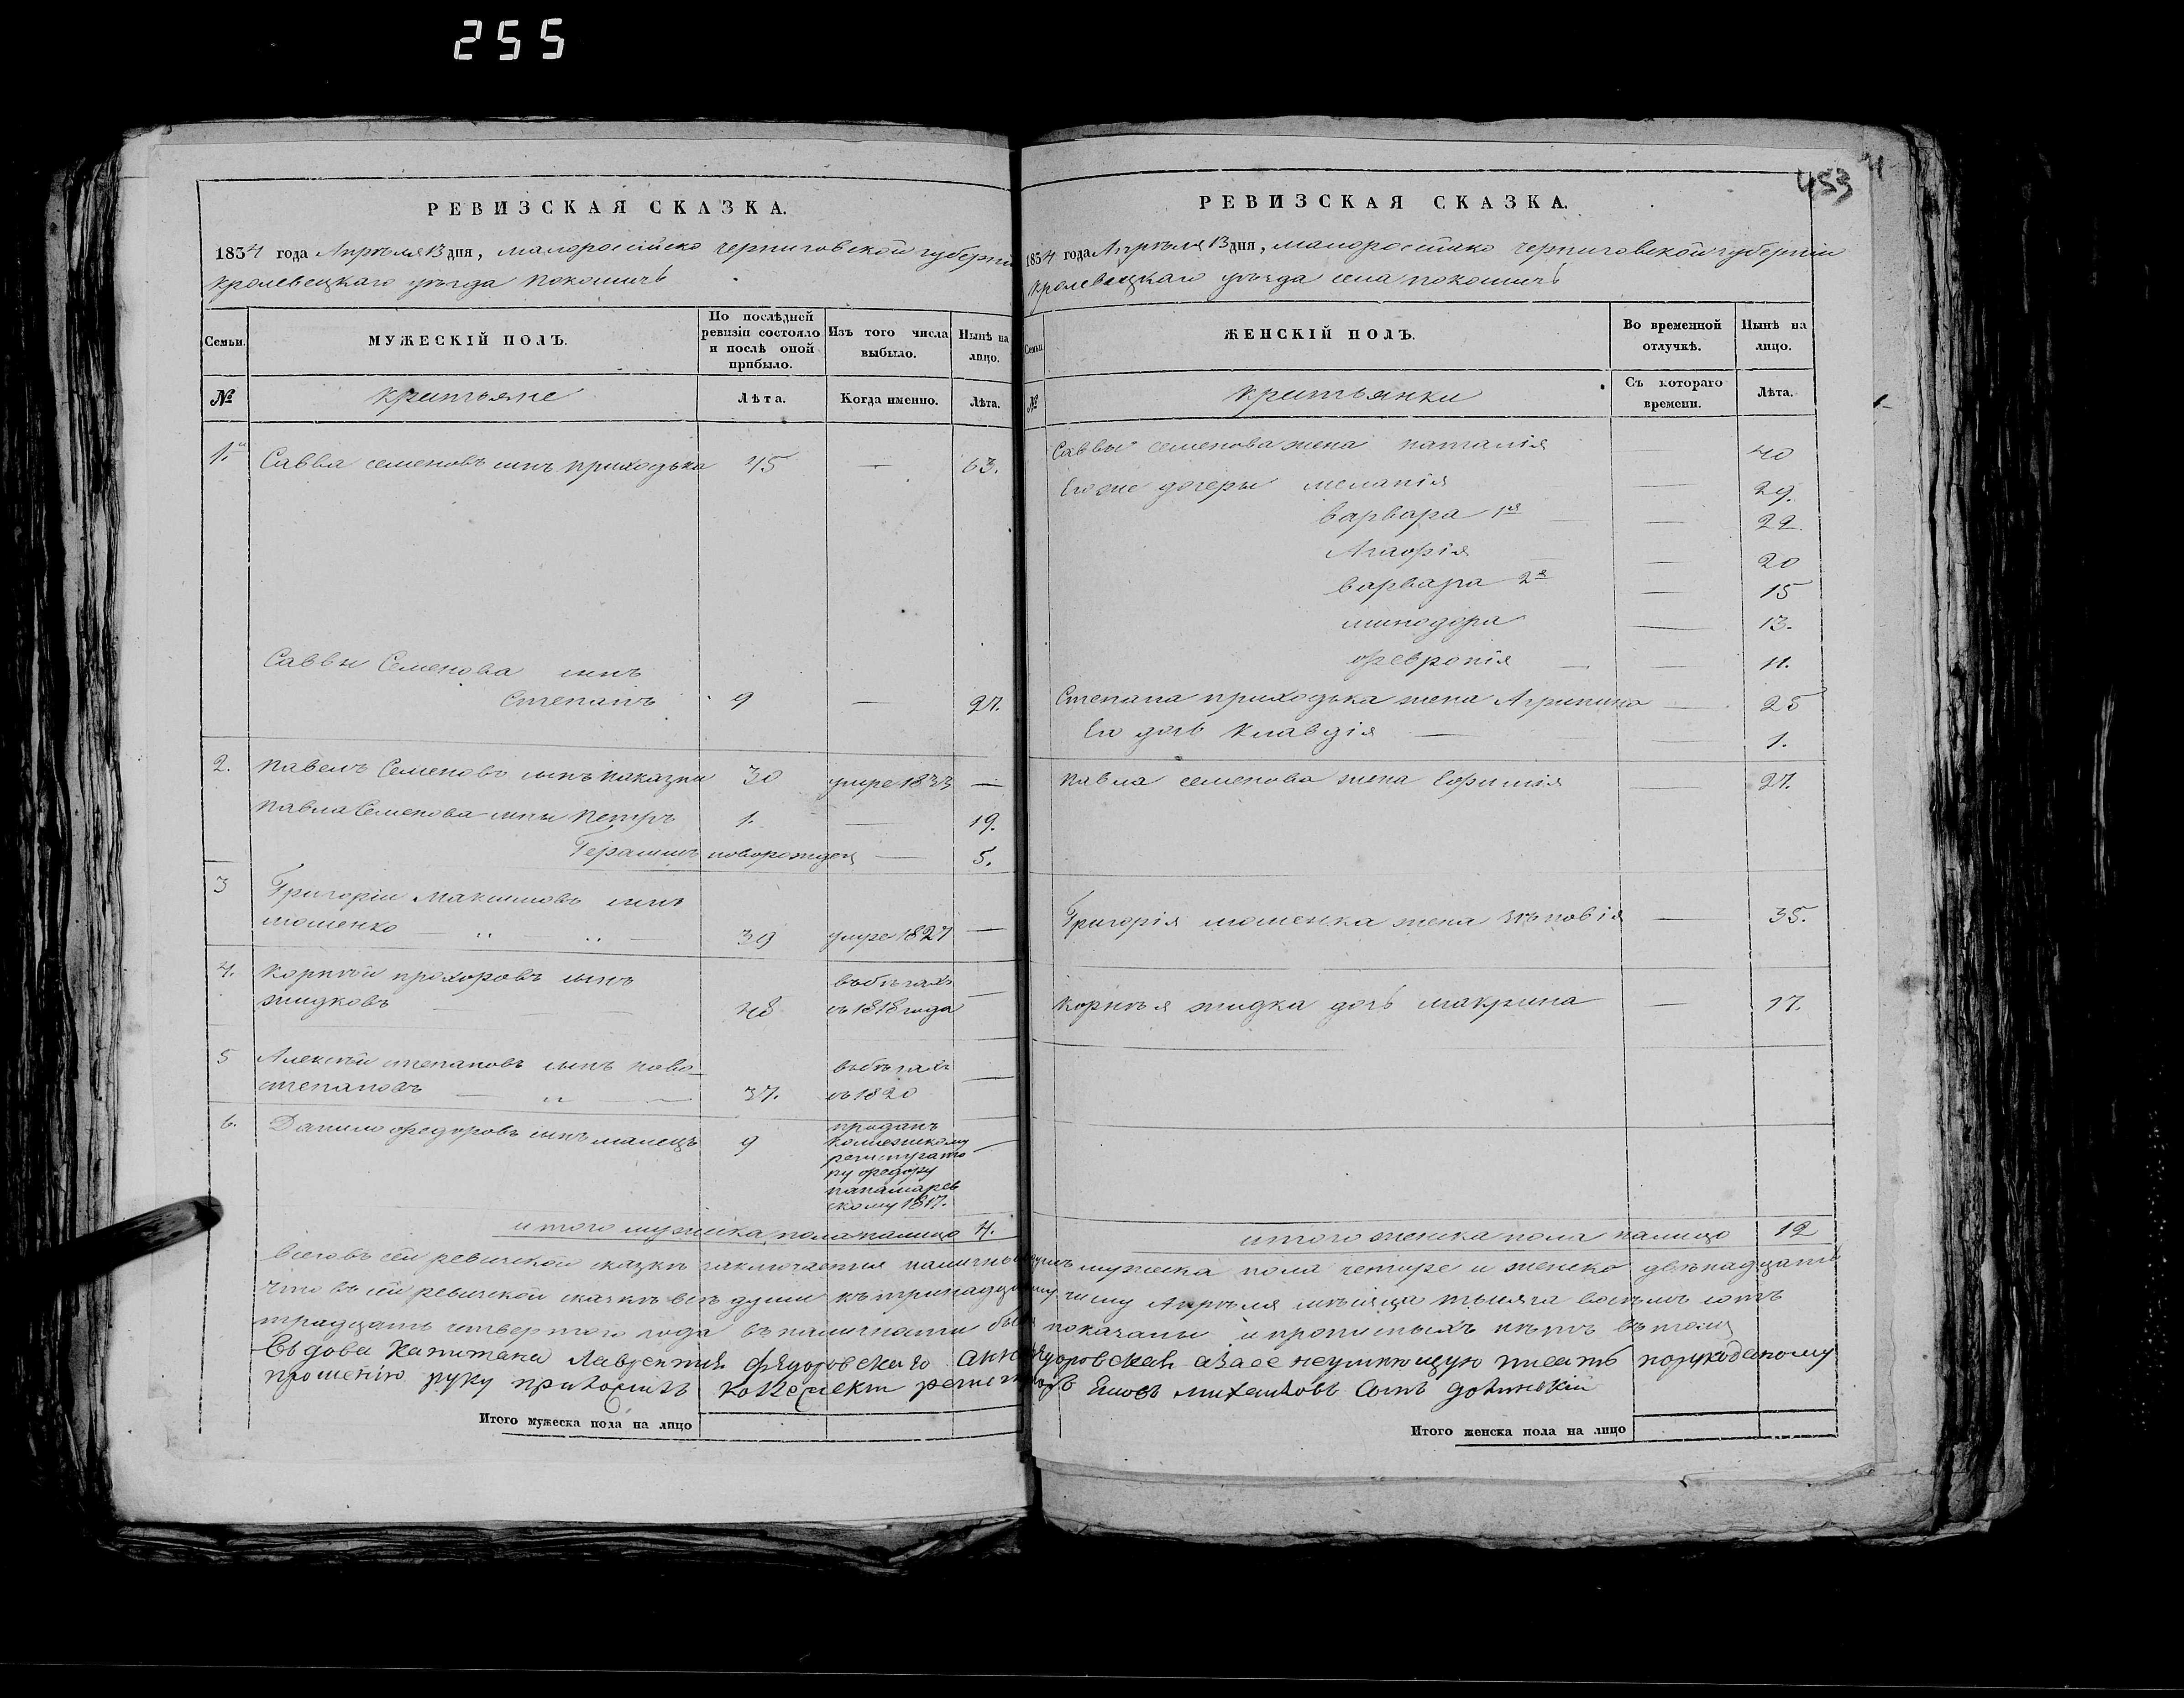 255
453
РЕВИЗСКАЯ СКАЗКА.
1834 года Апрѣля 13 дня, малоросійско черниговской губерніи
кролевецкаго уѣзда покошичь
Семьи.
МУЖЕСКІЙ ПОЛЪ.
По послѣдней ревизіи состояло и послѣ оной прибыло.
Изъ того числа выбыло.
Нынѣ на лицо.
№
Лѣта.
Когда именно.
Лѣта.
1. Савва семеновъ сынъ приходька 45 — 63.
Саввы Семенова сынъ
Степанъ 9 — 27.
2. Павелъ Семеновъ сынъ 30 умре 1833 —
Павла Семенова сынъ Петръ 1. — 19.
Герасимъ новорожден — 5.
3 Григорій Максимовъ сынъ
мошенко 39 умре 1827 —
4. Корнѣй прохоровъ сынъ въ бѣгахъ
жидковъ 48 съ 1818 года —
5 Алексѣй степановъ сынъ ново- въ бѣгахъ
степановъ 37. съ 1820 —
6. Данило федоровъ сынъ 9 проданъ
колежскому
регистрато
ру федору
скому 1817.
итого мужеска пола налицо 4.
РЕВИЗСКАЯ СКАЗКА.
1834 года Апрѣля 13 дня, малоросійско черниговской губерніи
кролевецкаго уѣзда села покошичь
Семьи.
ЖЕНСКІЙ ПОЛЪ.
Во временной отлучкѣ.
Нынѣ на лицо.
№
Съ котораго времени.
Лѣта.
Саввы семенова жена наталія — 40
Его же дочеры меланія — 29.
варвара 1я — 22.
— 20
варвара 2я — 15
минодора — 13.
февронія — 11.
Степана приходька жена Агрипина — 25
Его дочь Клавдія — 1.
Павла семенова жена Ефимія — 27.
Григорія мошенка жена зѣновія — 35.
Корнѣя жидка дочь макрина — 17.
итого женска пола налицо 12
всего въ сей ревизской сказкѣ заключается наличныхъ душъ мужеска пола четыре и женско двѣнадцать
что въ сей ревизской сказкѣ всѣ души къ тринадцатому числу Апрѣля мѣсяца тысяча восемъ сотъ
тридцать четвертого года въ наличности показаны и прописныхъ нѣтъ въ томъ
Вдова Капитана Лаврентия Федоровскаго Анна Федоровская
прошенію руку приложилъ Михайловъ Сынъ
Итого мужеска пола на лицо
Итого женска пола на лицо